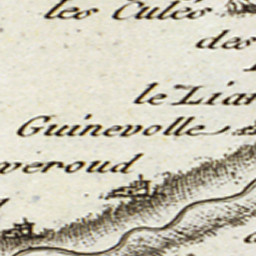 les Culés
des
le Lian
Guinevolle
weroud